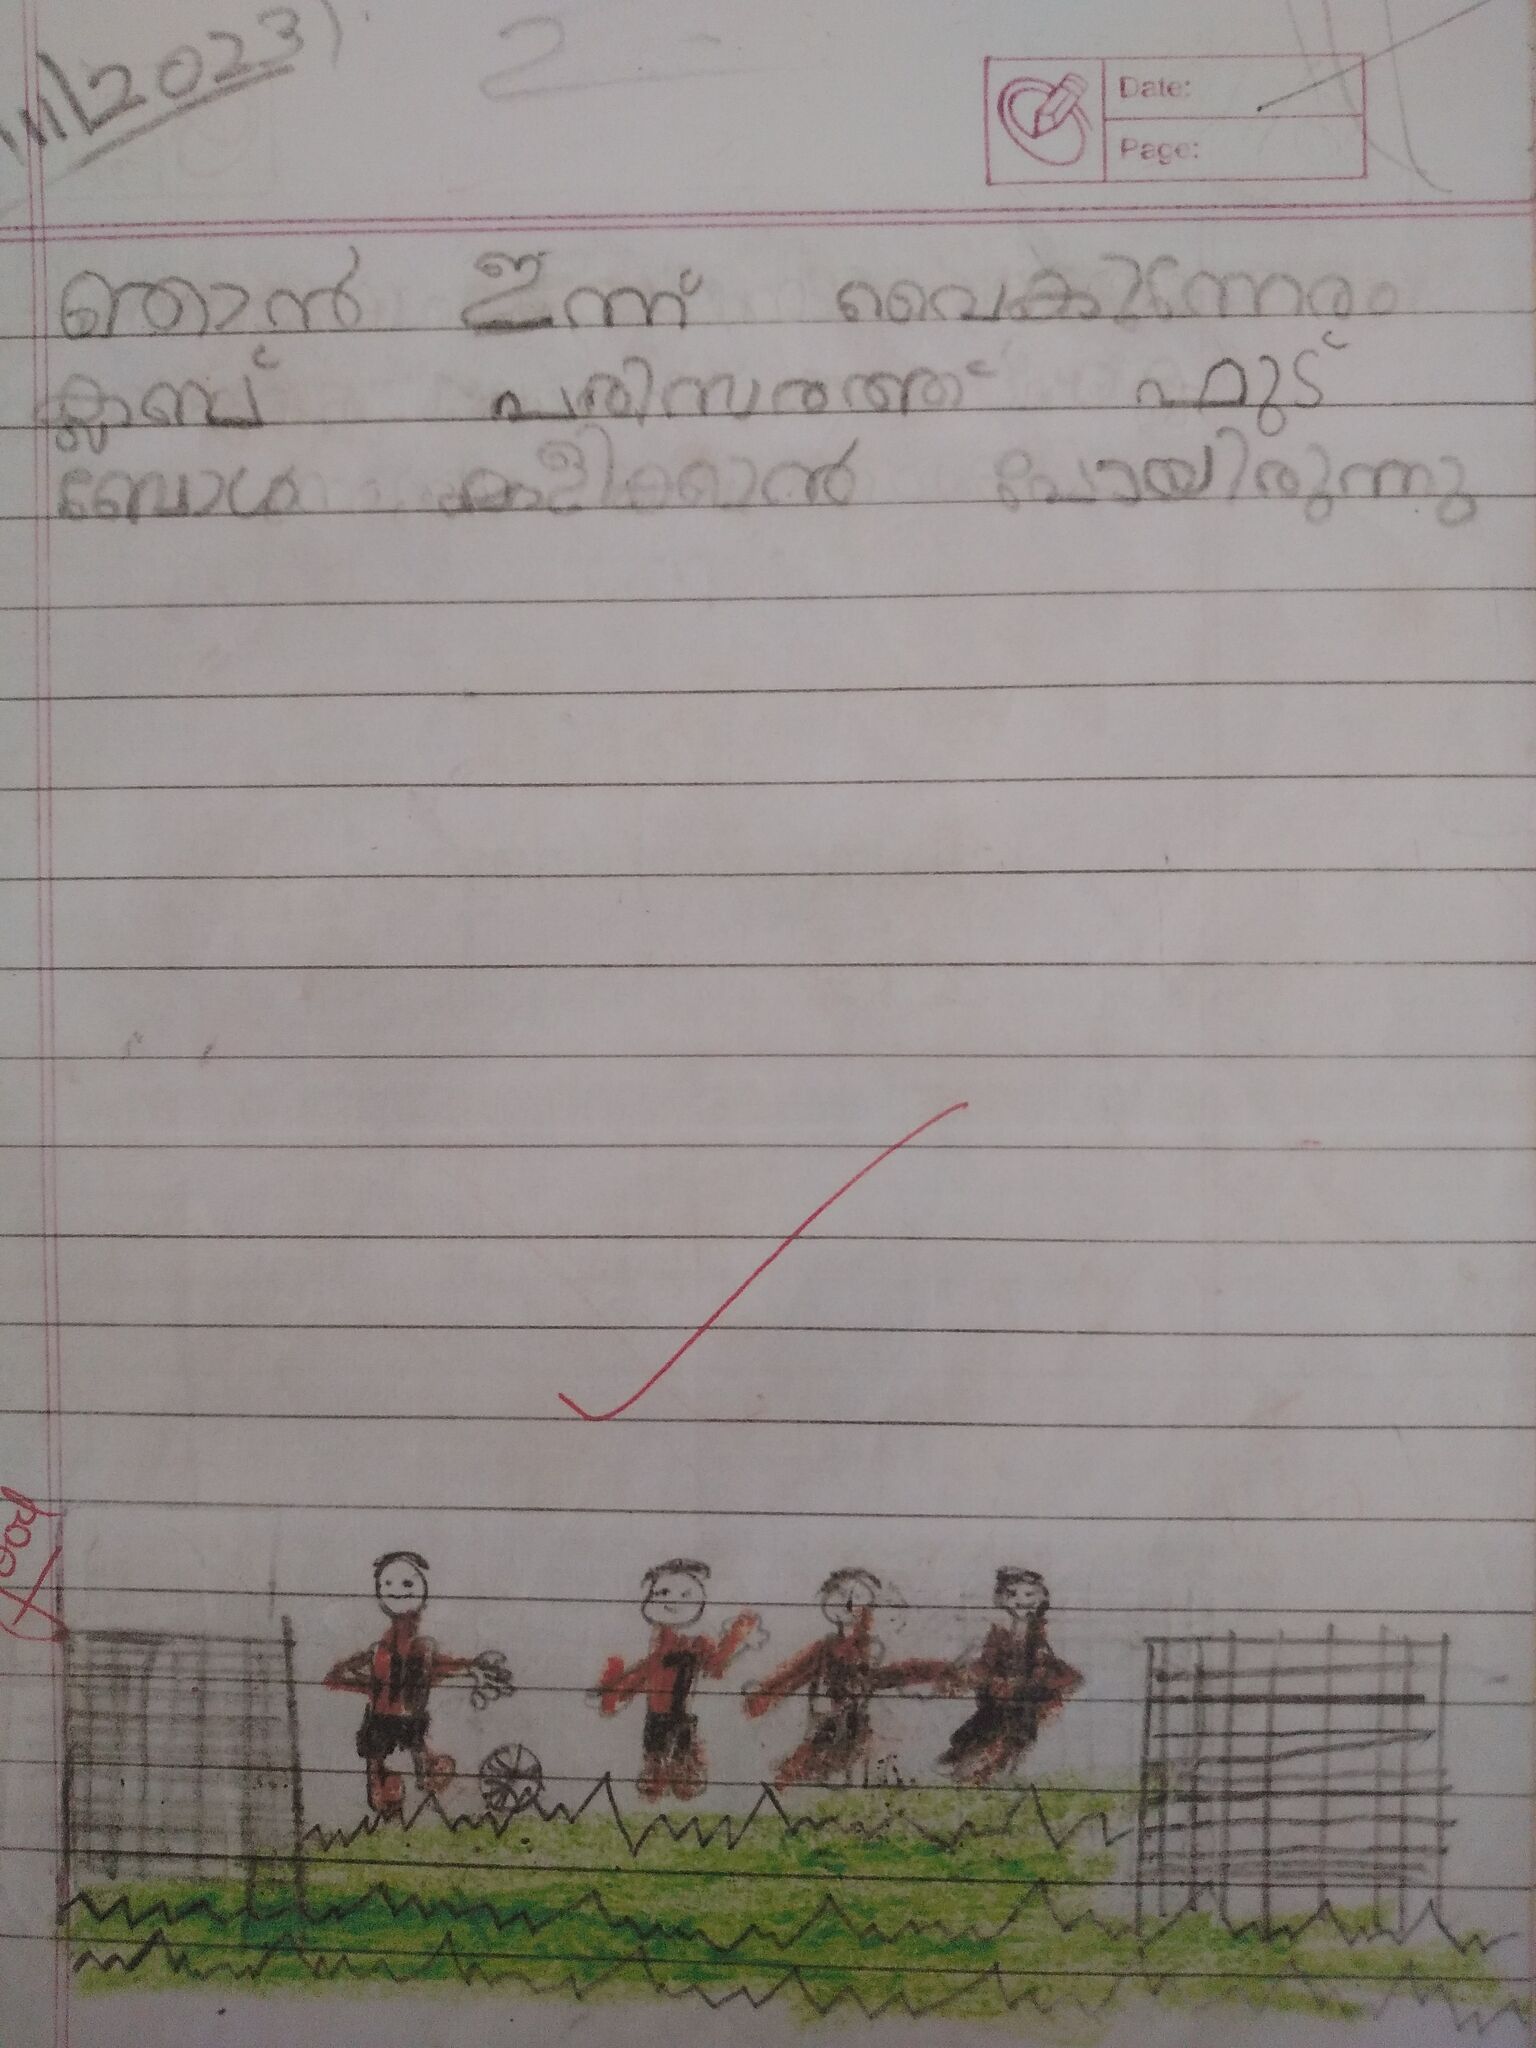 2023
2
Date:
Page:
ഞാൻ ഇന്ന് വൈകുന്നേരം
ക്ലബ്ബ് പരിസരത്ത് ഫുട്
ബോൾ കളിക്കാൻ പോയിരുന്നു
7